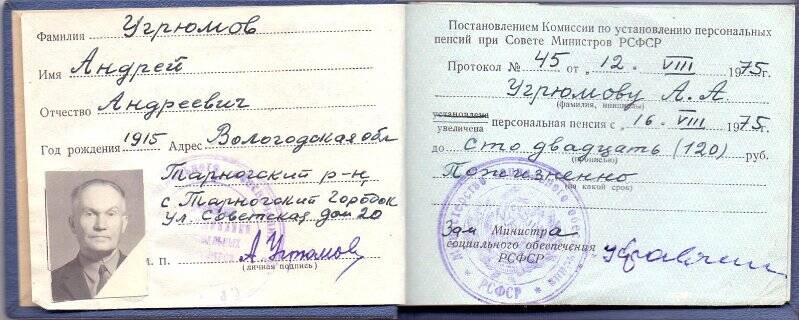 Фамилия Угрюмов
Имя Андрей
Отчество Андреевич
Год рождения 1915 Адрес Вологодская обл
Тарногский р-н,
с Тарногский Городок
ул. Советская дом 20
М. П. А. Угрюмов
(личная подпись)
Постановлением Комиссии по установлению персональных
пенсий при Совете Министров РСФСР
Протокол № 45 от „ 12 „ VIII 1975г.
Угрюмову А. А.
(фамилия, инициалы)
установлена
увеличена персональная пенсия с „ 16 „ VIII 1975г.
до сто двадцать (120) руб.
(прописью)
Пожизненно
(на какой срок)
Зам Министра
социального обеспечения
РСФСР
РСФСР